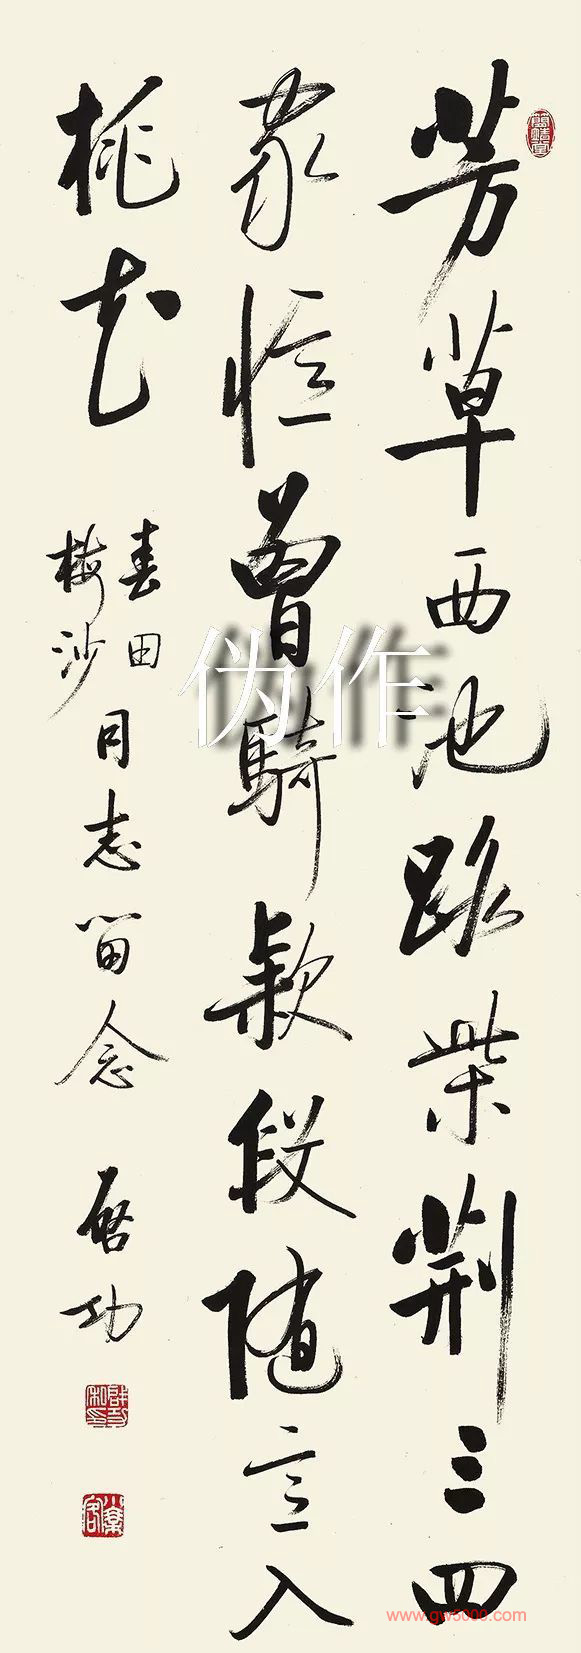 芳草西池路柴荆三四
家憶曾騎款段随意入
桃花
春田
梅沙
同志留念
启功
伪作
www.gw5000.com